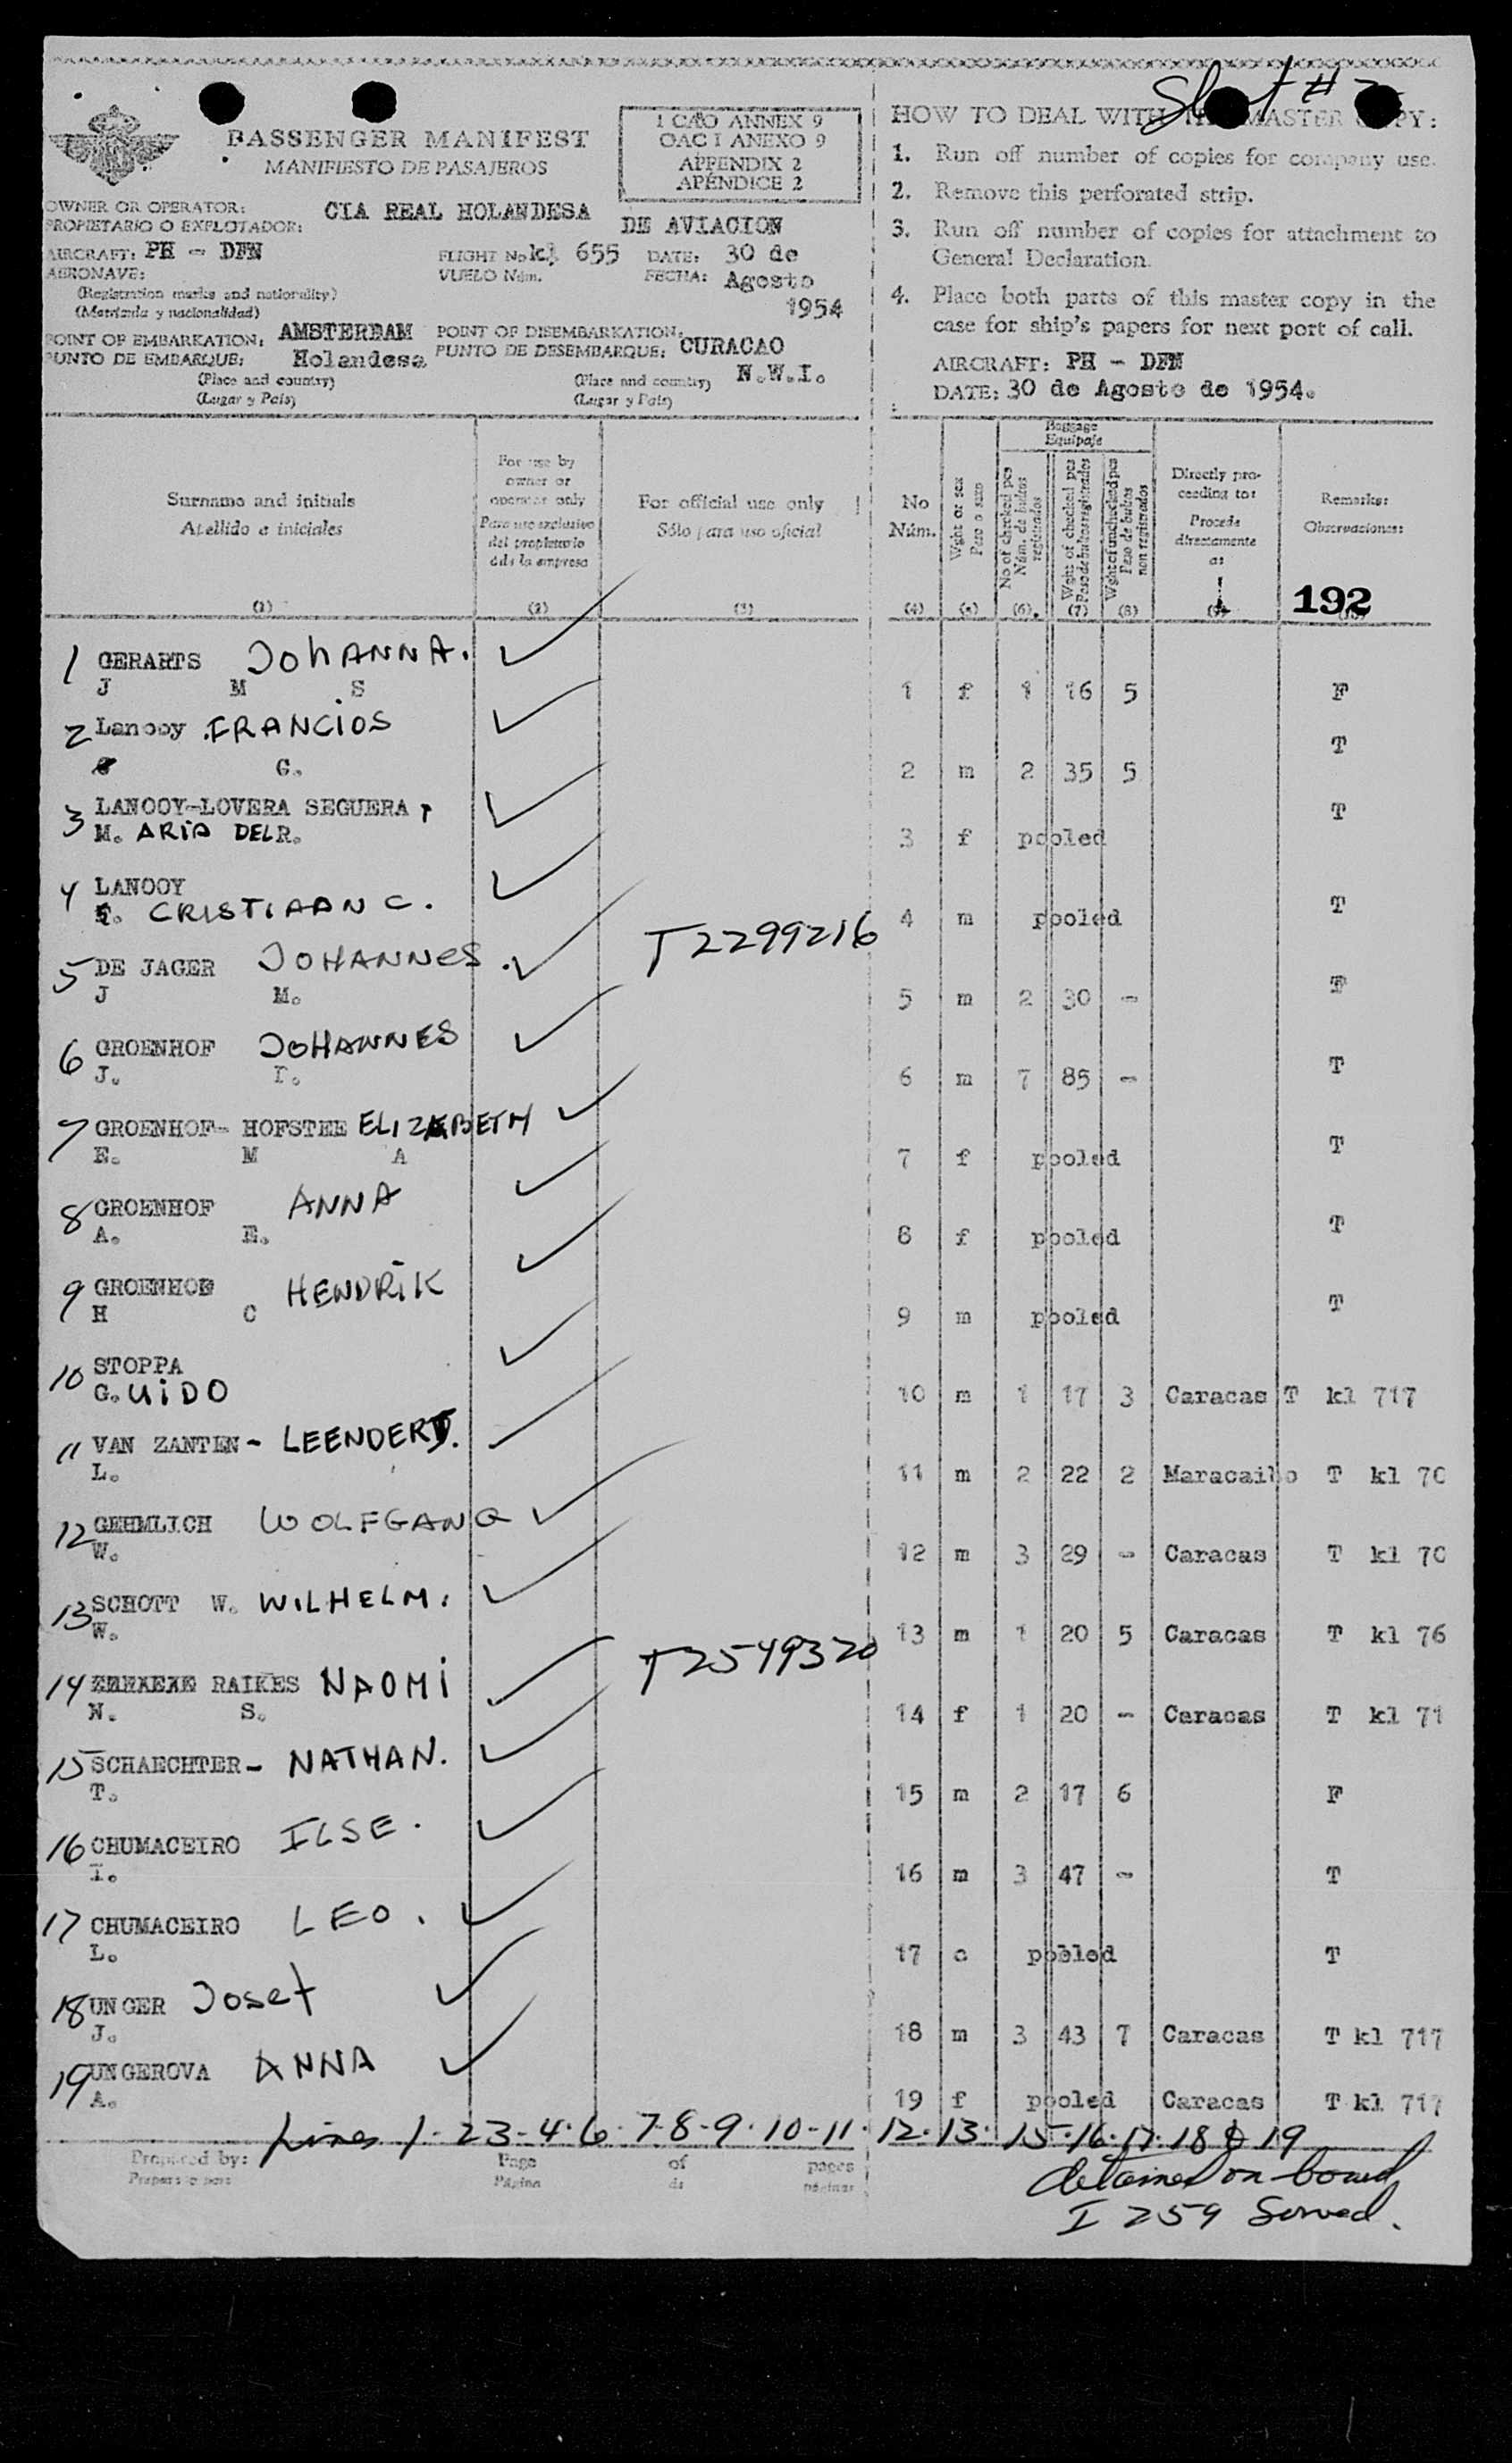 PASSENGER MANIFEST
MANIFIESTO DE PASAJEROS
I CAO ANNEX 9
OAC I ANEXO 9
APPENDIX 2
APÉNDICE 2
OWNER OR OPERATOR: CIA REAL HOLANDESA DE AVIACION
PROPIETARIO O EXPLOTADOR:
AIRCRAFT: PH - DFN FLIGHT No kl 655 DATE: 30 de
AERONAVE: VUELO Núm. FECHA: Agosto
(Registration marks and nationality) 1954
(Matrícula y nacionalidad)
POINT OF EMBARKATION: AMSTERDAM POINT OF DISEMBARKATION: CURACAO
PUNTO DE EMBARQUE: Holandesa PUNTO DE DESEMBARQUE: N.W.I.
(Place and country) (Place and country)
(Lugar y País) (Lugar y País)
HOW TO DEAL WITH MASTER COPY:
1. Run off number of copies for company use.
2. Remove this perforated strip.
3. Run off number of copies for attachment to
General Declaration.
4. Place both parts of this master copy in the
case for ship's papers for next port of call.
AIRCRAFT: PH - DFN
DATE: 30 de Agosto de 1954.
Surname and initials
Apellido e iniciales
(1)
For use by
owner or
operator only
Para uso exclusivo
del propietario
o de la empresa
(2)
For official use only
Sólo para uso oficial
(3)
No
Núm.
(4)
Wght or sex
Peso o sexo
(5)
Baggage
Equipaje
No of checked pcs
Núm. de bultos
registrados
(6)
Wght of checked pcs
Peso de bultos registrados
(7)
Wght of unchecked pcs
Peso de bultos
non registrados
(8)
Directly pro-
ceeding to:
Procede
directamente
a:
Remarks:
Observaciones:
192
1 GERARTS JOHANNA.
J M S
1 f 1 16 5 F
2 Lanooy FRANCIOS
G.
2 m 2 35 5 T
3 LANOOY-LOVERA SEGUERA
M. ARIA DEL R.
3 f pooled T
4 LANOOY
CRISTIAAN C.
4 m pooled T
5 DE JAGER JOHANNES. T2299216
J M.
5 m 2 30 - T
6 GROENHOF JOHANNES
J. I.
6 m 7 85 - T
7 GROENHOF- HOFSTEE ELIZABETH
E. M A
7 f pooled T
8 GROENHOF ANNA
A. E.
8 f pooled T
9 GROENHOF HENDRIK
H C
9 m pooled T
10 STOPPA
G. UIDO
10 m 1 17 3 Caracas T kl 717
11 VAN ZANTEN- LEENDERT.
L.
11 m 2 22 2 Maracaibo T kl 70
12 GEHMLICH WOLFGANG
W.
12 m 3 29 - Caracas T kl 70
13 SCHOTT W. WILHELM.
W.
13 m 1 20 5 Caracas T kl 76
14 RAIKES NAOMI T2549320
N. S.
14 f 1 20 - Caracas T kl 71
15 SCHAECHTER- NATHAN.
T.
15 m 2 17 6 F
16 CHUMACEIRO ILSE.
I.
16 m 3 47 - T
17 CHUMACEIRO LEO.
L.
17 c pooled T
18 UNGER Josef
J.
18 m 3 43 7 Caracas T kl 717
19 UNGEROVA ANNA
A.
19 f pooled Caracas T kl 717
Lines 1-23-4.6.7-8-9.10-11.12.13.15.16.17.18 & 19
Prepared by: Page of pages
Página de páginas
detained on board
I 259 Served.